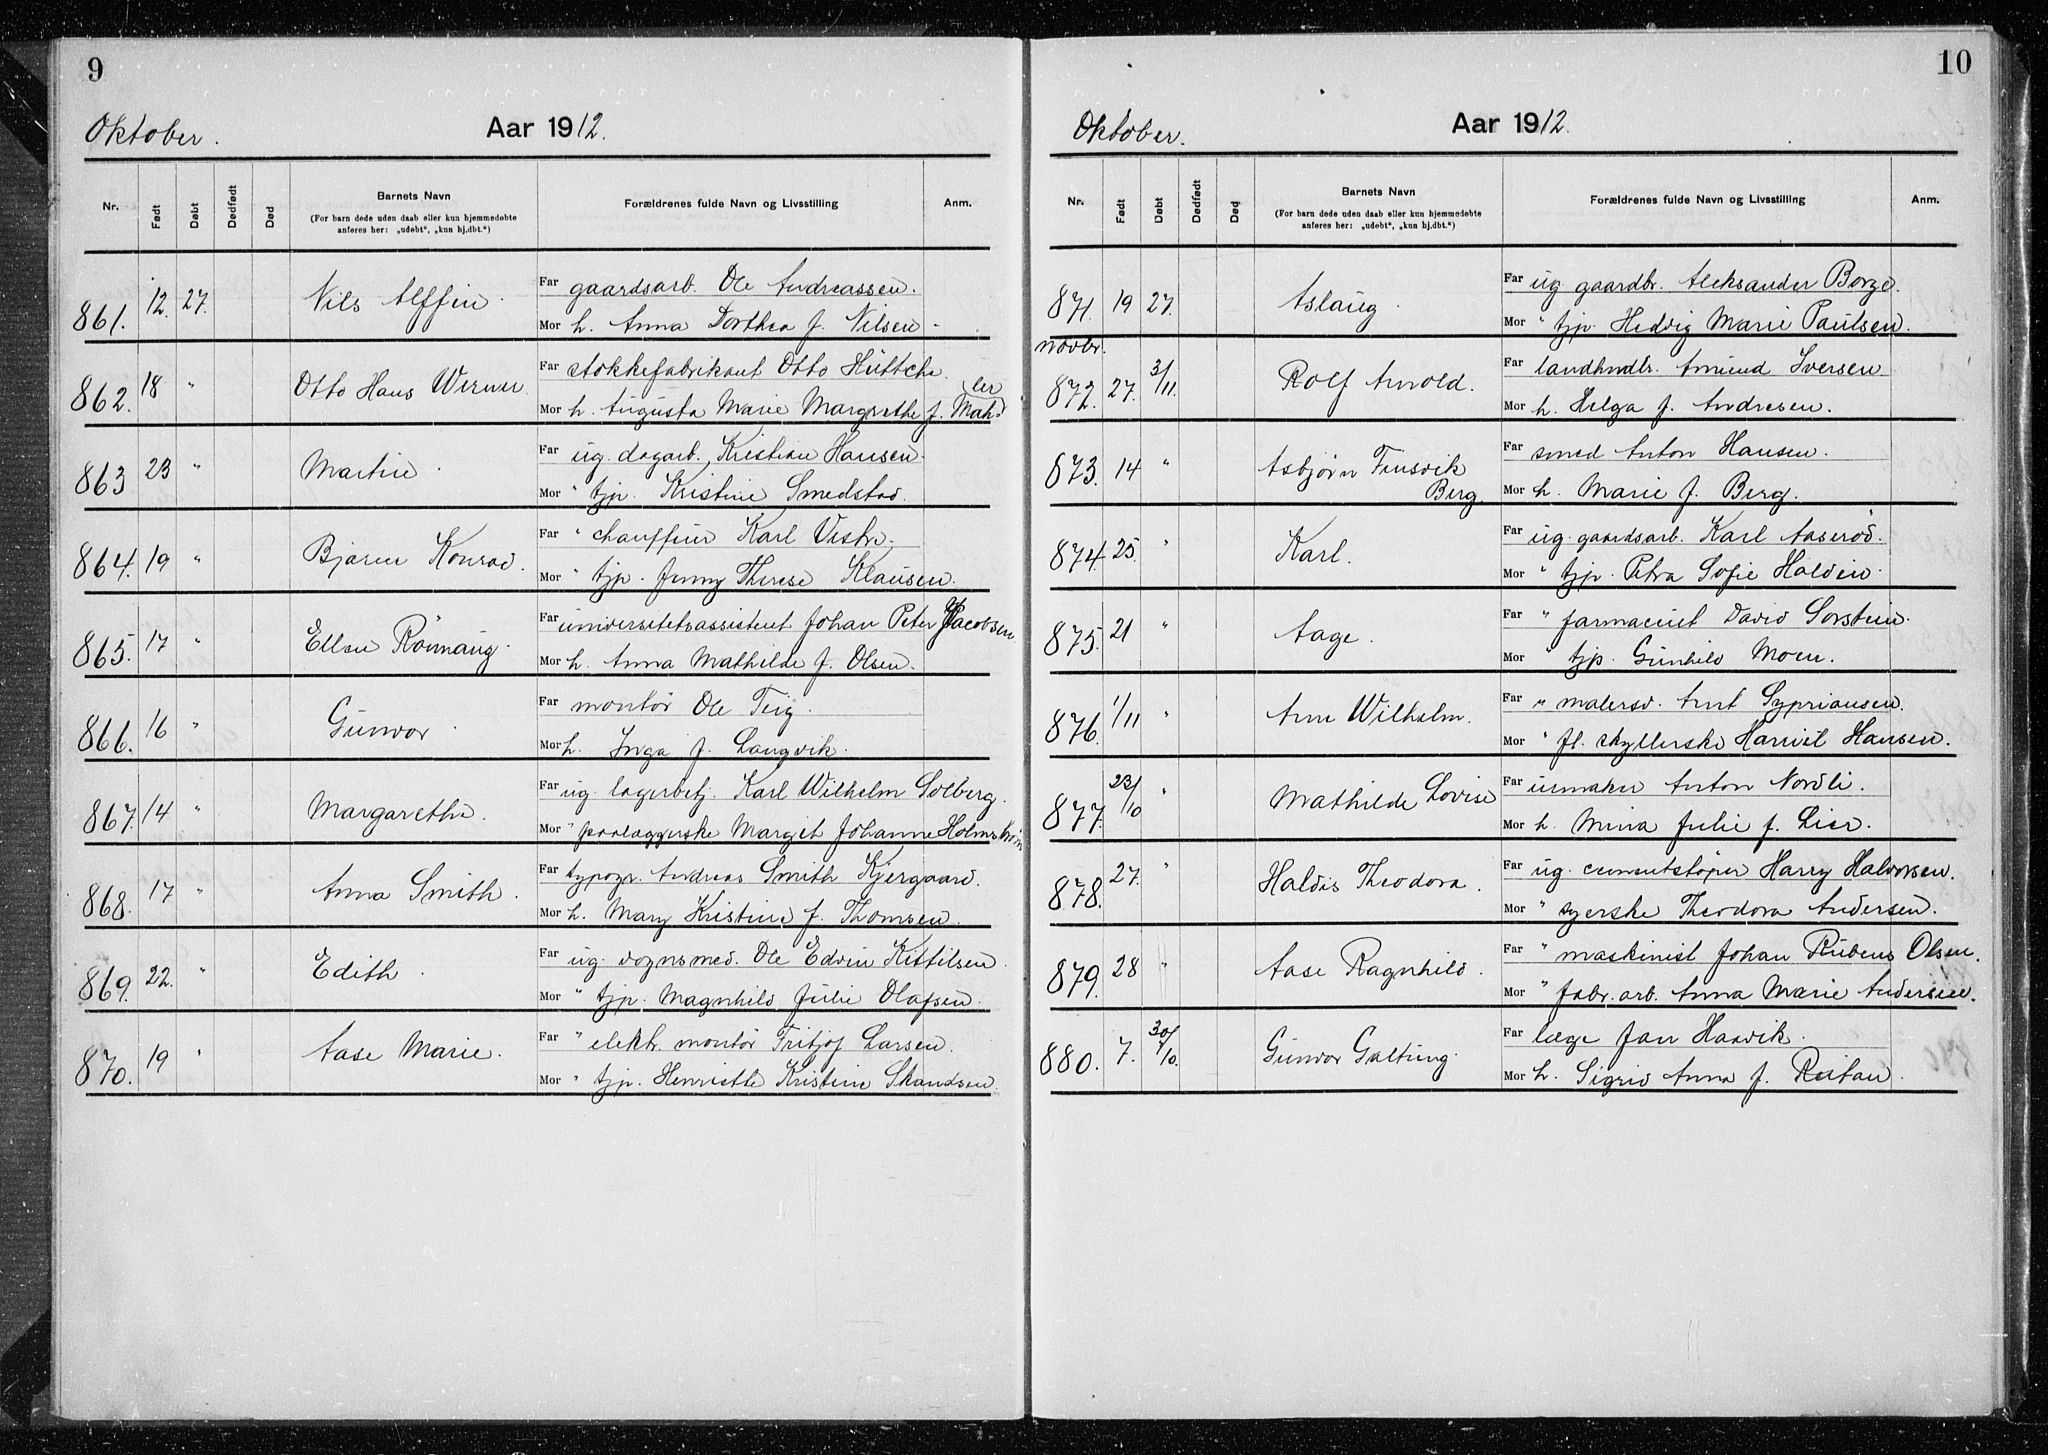 9
Oktober.
Aar 1912.
Nr. Født Døbt Dødfødt Død Barnets Navn Forældrenes fulde Navn og Livsstilling Anm.
(For barn døde uden daab eller kun hjemmedøbte
anføres her: „udøbt“, „kun hj.dbt.“)
861. 12. 27. Nils Alffin. Far gaardsarb. Ole Andreassen.
Mor h. Anna Dorthea f. Nilsen.
862. 18 " Otto Hans Werner. Far stokkefabrikant Otto
Mor h. Augusta Marie Margrethe f. Mah-
ler
863 23 " Martin Far ug. dagarb. Kristian Hansen.
Mor " tjp. Kristine Smedstad.
864. 19 " Bjarne Konrad. Far " chauffeur Karl
Mor " tjp. Jenny Therese Klausen.
865. 17 " Ellen Rönnaug. Far universitetsassistent Johan Peter Jacobsen.
Mor h. Anna Mathilde f. Olsen.
866. 16 " Gunvor. Far montör Ole Teig.
Mor h. Inga f. Langvik.
867. 14 " Margarethe. Far ug. lagerbetj. Karl Wilhelm Solberg.
Mor " paalæggerske Margit Johanne Holmström
868. 17 " Anna Smith. Far typogr. Andreas Smith Kjergaard.
Mor h. Mary Kristine f. Thomsen.
869. 22. " Edith. Far ug. vognsmed. Ole Edvin Kittilsen.
Mor " tjp. Magnhild Julie Olafsen.
870. 19 " Aase Marie. Far " elektr. montör Fritjof Larsen.
Mor " tjp. Henriette Kristine Skandsen.
10
Oktober.
Aar 1912.
Nr. Født Døbt Dødfødt Død Barnets Navn Forældrenes fulde Navn og Livsstilling Anm.
(For barn døde uden daab eller kun hjemmedøbte
anføres her: „udøbt“, „kun hj.dbt.“)
871. 19 27. Aslaug. Far ug. gaardbr. Aleksander Borge.
Mor " tjp. Hedvig Marie Paulsen.
novbr.
872. 27. 3/11. Rolf Arnold. Far landhndlr. Amund Iversen.
Mor h. Helga f. Andresen.
873. 14 " Asbjørn Finsvik Far smed Anton Hansen.
Berg. Mor h. Marie f. Berg.
874. 25. " Karl. Far ug. gaardsarb. Karl Aaseröd.
Mor " tjp. Petra Sofie Halden.
875. 21 " Aage. Far " farmaceut David
Mor " tjp. Gunhild Moen.
876. 1/11 " Arne Wilhelm. Far " malersv. Arnt Sypriansen.
Mor " fl. skyllerske Harriet Hansen.
877. 23/10 " Mathilde Lovise Far urmaker Anton Nordli.
Mor h. Mina Julie f. Lier.
878. 27. " Haldis Theodora. Far ug. cementstöper Harry Halvorsen.
Mor " syerske Theodora Andersen.
879. 28 " Aase Ragnhild. Far " maskinist Johan Rubens Olsen.
Mor " fabr. arb. Anna Marie Andersen.
880. 7. 30/10. Gunvor Galtung. Far læge Jan Haavik.
Mor h. Sigrid Anna f. Reitan.